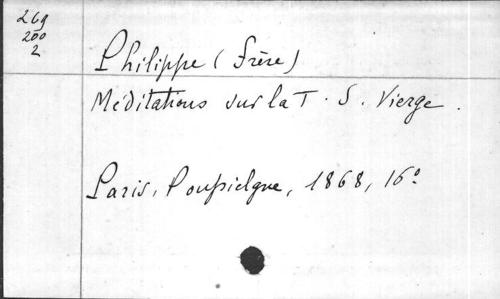 269
200
2
Philippe (frère)
Méditations sur la T. S. Vierge.
Paris, Poupielgue, 1868, 16º